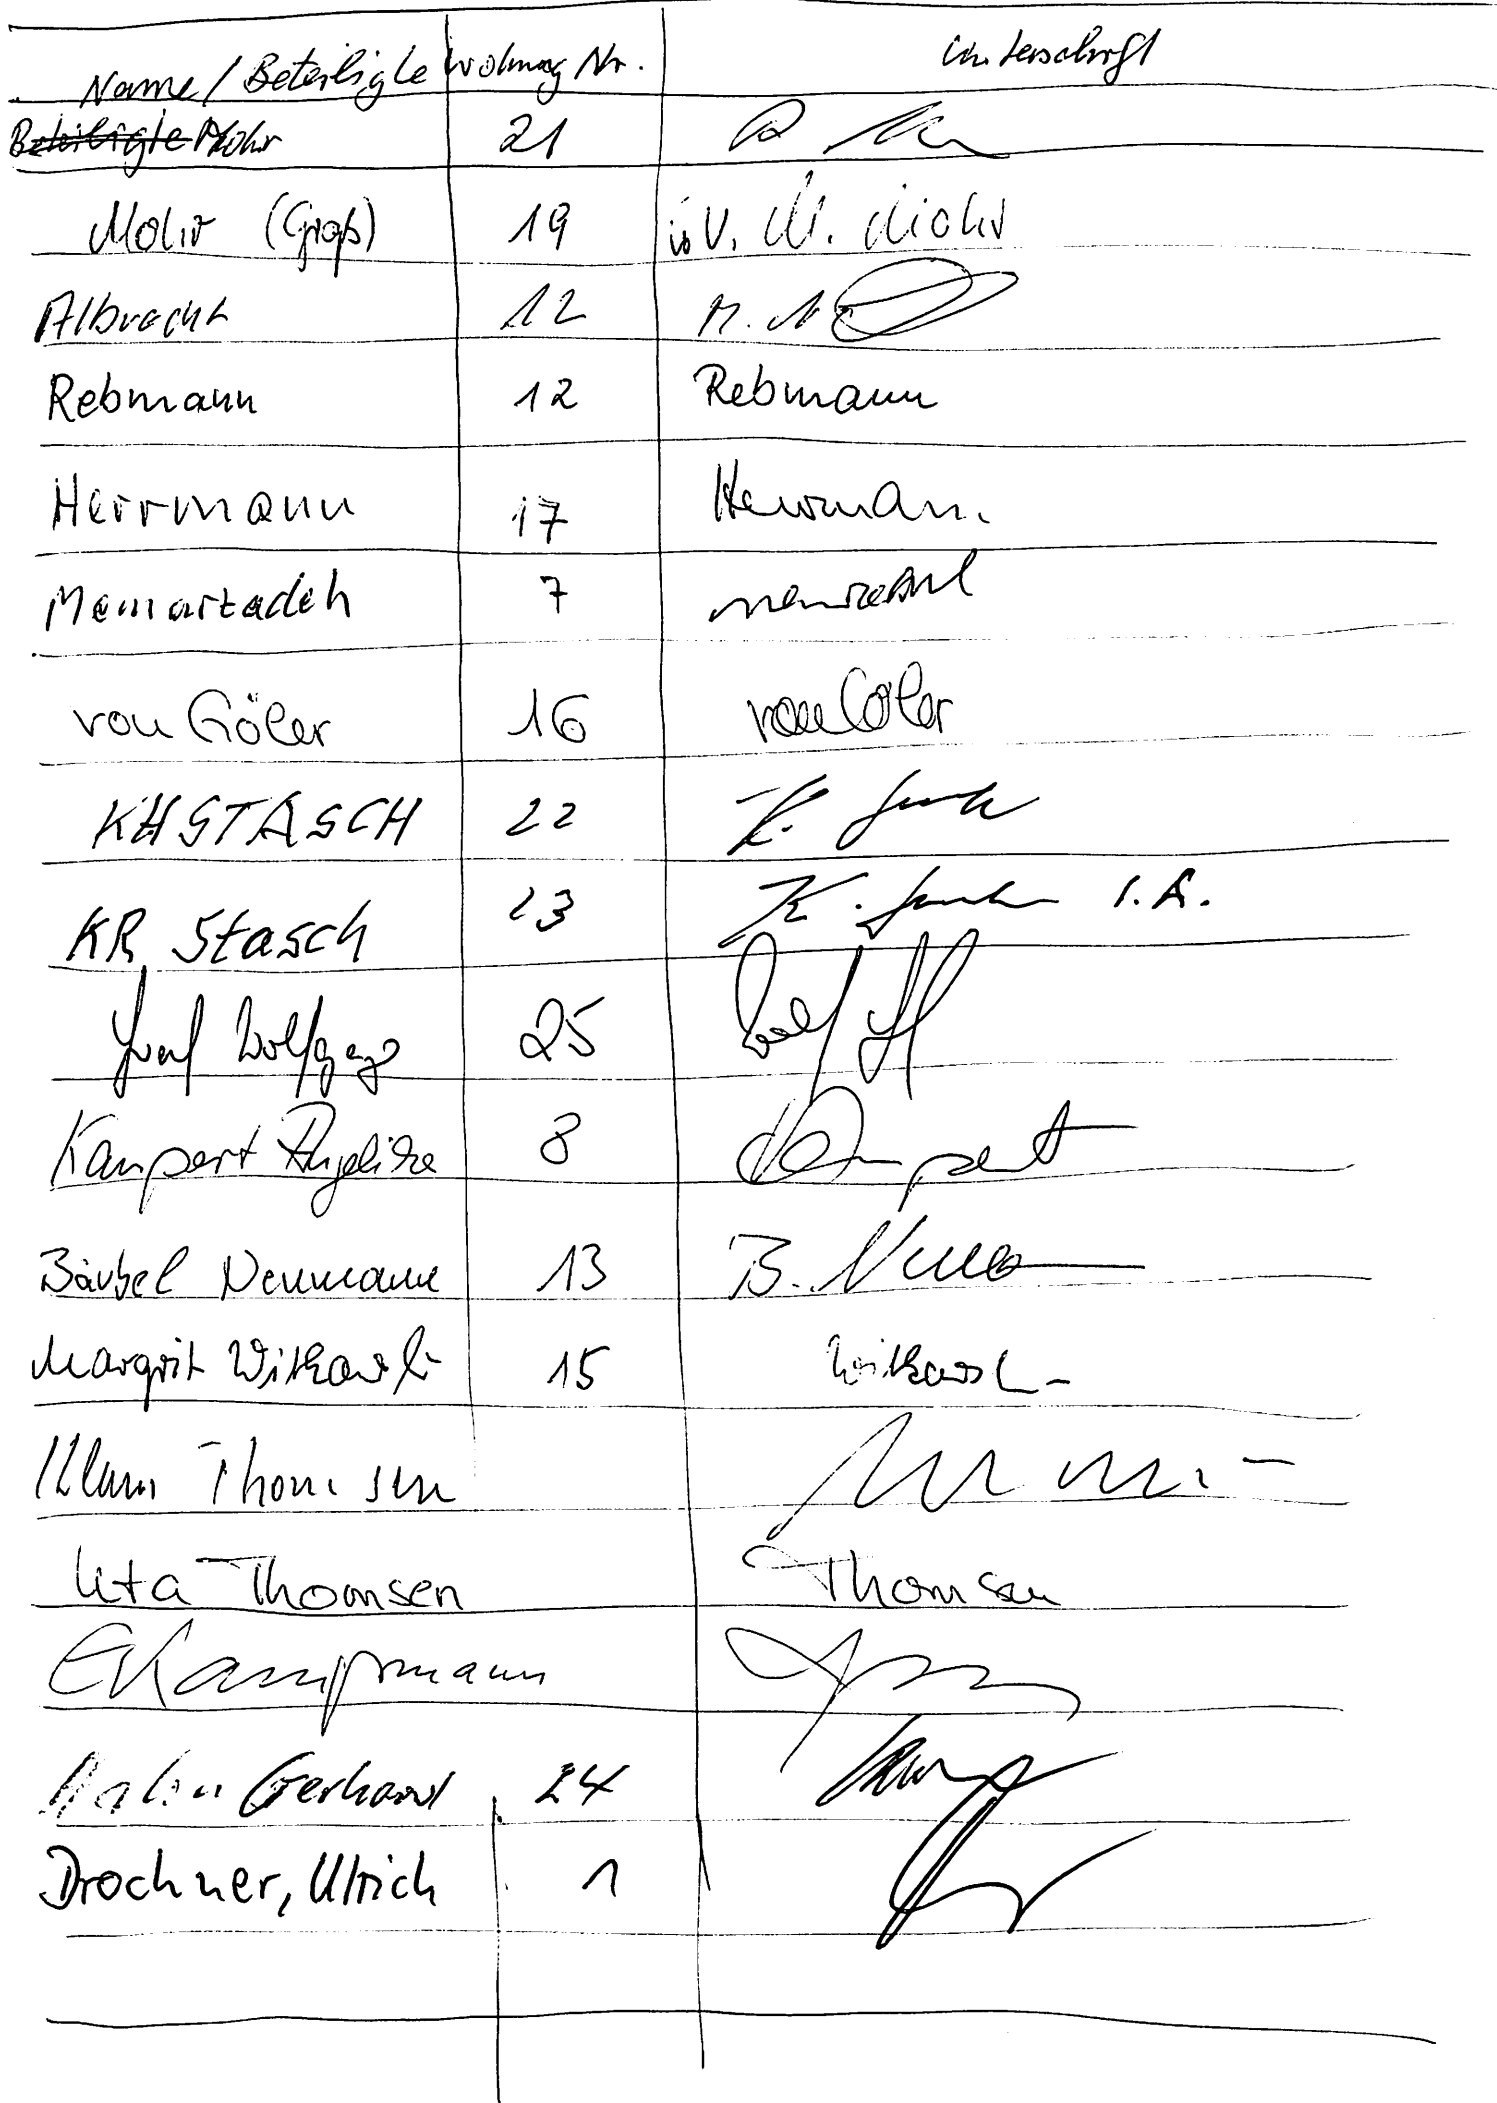 Name / Beteiligte Wohnung Nr. Unterschrift
Beteiligte Mohr 21
Mohr (Groß) 19 i.V. M. Mohr
Albracht 12 M.
Rebmann 12 Rebmann
Herrmann 17 Herrmann
Memarzadeh 7
von Göler 16 von Göler
KH STASCH 22 K.
KR Stasch 23 K. i.A.
Wolfgang 25
Kampert Angelika 8 Kampert
Bärbel Neumann 13 B.
Margrit Witkowski 15 Witkowski
Thomsen
Uta Thomsen Thomsen
E Kampmann
Gerhard 24
Drochner, Ulrich 1